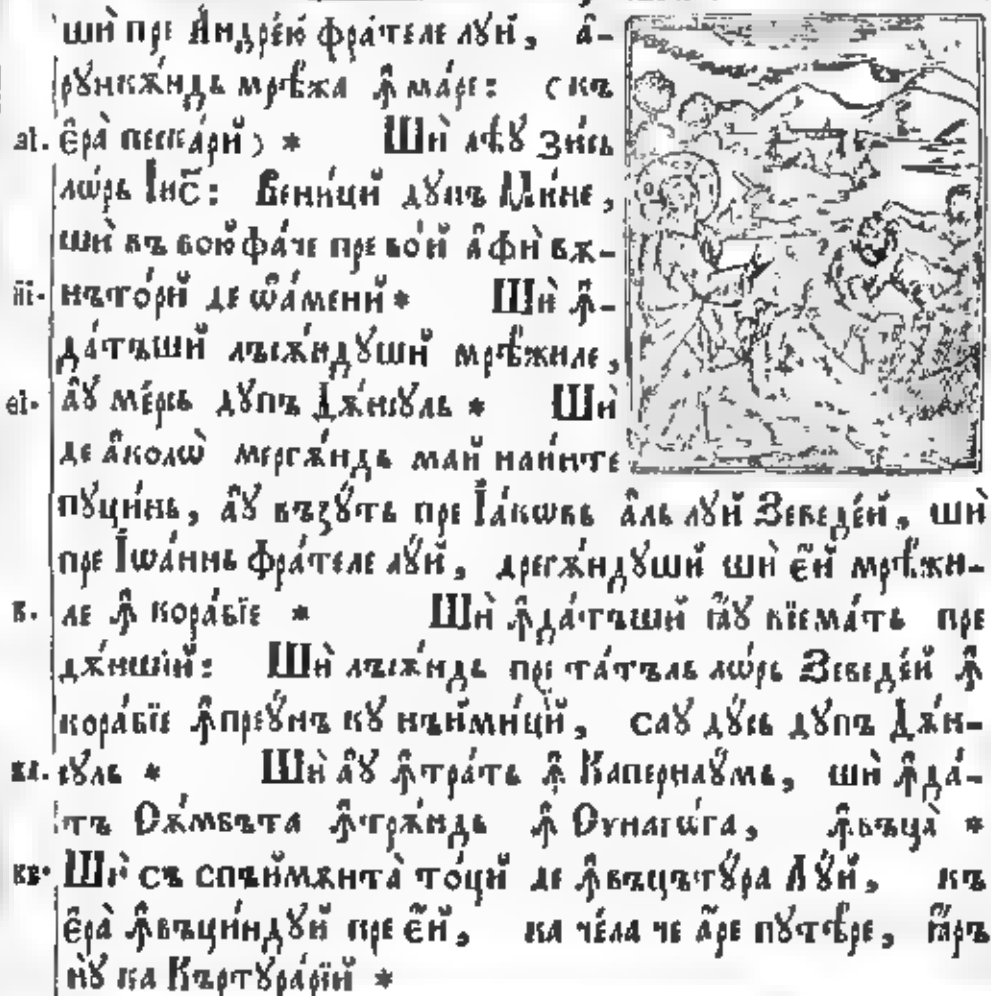 шѝ пре Андре́ю фра́теле лꙋ́й, а̂-
рꙋнкѫ́ндь мрѣ́жа ꙟ҆ ма́ре: (къ
з҃і. є̂ра̀ песка́ри) * Шѝ лѣ́ꙋ зи́сь
лѡ́рь І҆и҃с: Вени́ци́й дꙋ́пъ Ми́не,
шѝ въ вою̀ фа́че пре во́й а̂ фѝ вѫ-
и҃і. нъто́ри де ѡ҆а́мени * Шѝ ꙟ҆-
да́тъши́й лъсѫ́ндꙋши́й мрѣ́жиле,
ѳ҃і. а̂ꙋ ме́рсь дꙋ́пъ Дѫ́нсꙋль * Шѝ
де а̂колѡ̀ мергѫ́ндь май наи́нте
пꙋци́нь, а̂ꙋ възꙋ́ть пре І҆а́кѡвь а̂ль лꙋ́й Зеведе́й, шѝ
пре І҆ѡа́ннь фра́теле лꙋ́й, дрегѫ́ндꙋши́й шѝ є̂́й мрѣ́жи-
к҃. ле ꙟ҆ кора́бїе * Шѝ ꙟ҆да́тъши́й ꙗ҆ꙋ кїема́ть пре
дѫ́ншїй: Шѝ лъсѫ́ндь пре та́тъль лѡ́рь Зеведе́й ꙟ҆
кора́бїе ꙟ҆преꙋ́нъ кꙋ нъими́ций, саꙋ дꙋ́сь дꙋ́пъ Дѫ́н-
к҃а. сꙋль * Шѝ а̂ꙋ ꙟ҆тра́ть ꙟ҆ Каперна́ꙋмь, шѝ ꙟ҆да́-
тъ Сѫ́мбъта ꙟ҆трѫ́ндь ꙟ҆ Сѵнагѡ́га, ꙟ҆въца̀ *
к҃в. Шѝ съ спъймѫнта̀ то́ций де ꙟ҆въцътꙋ́ра Лꙋ́й, къ
є̂ра̀ ꙟ҆въци́ндꙋй пре є̂́й, ка че́ла че а̂́ре пꙋтѣ́ре, ꙗ҆ръ
нꙋ ка Къртꙋра́рїй *